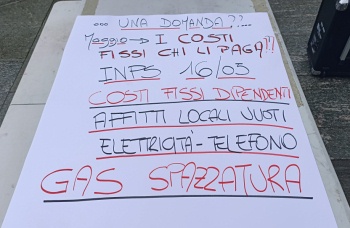 ... UNA DOMANDA??...
Maggio→ I COSTI
FISSI CHI LI PAGA?!
INPS 16/05
COSTI FISSI DIPENDENTI
AFFITTI LOCALI VUOTI
ELETRICITÀ - TELEFONO
GAS SPAZZATURA